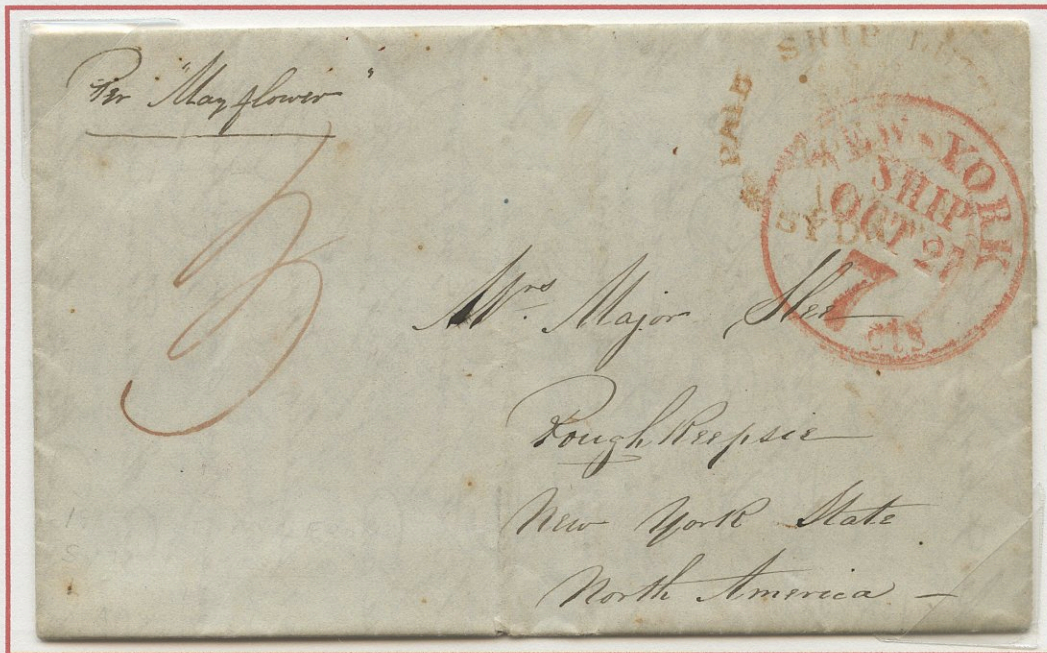 Per "Mayflower"
3
PAID SHIP LETTER
SYDNEY
NEW-YORK
SHIP
OCT 27
7
cts
Mrs. Major Slee
Poughkeepsie
New York State
North America —